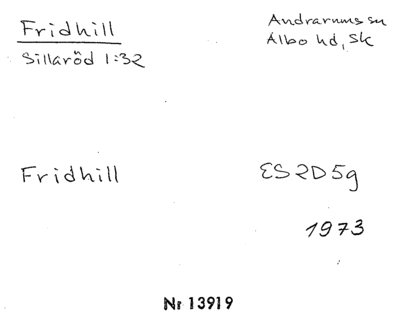 Fridhill
Sillaröd 1:32
Andrarums sn
Albo hd, Sk
Fridhill
ES 2D 5g
1973
Nr 13919